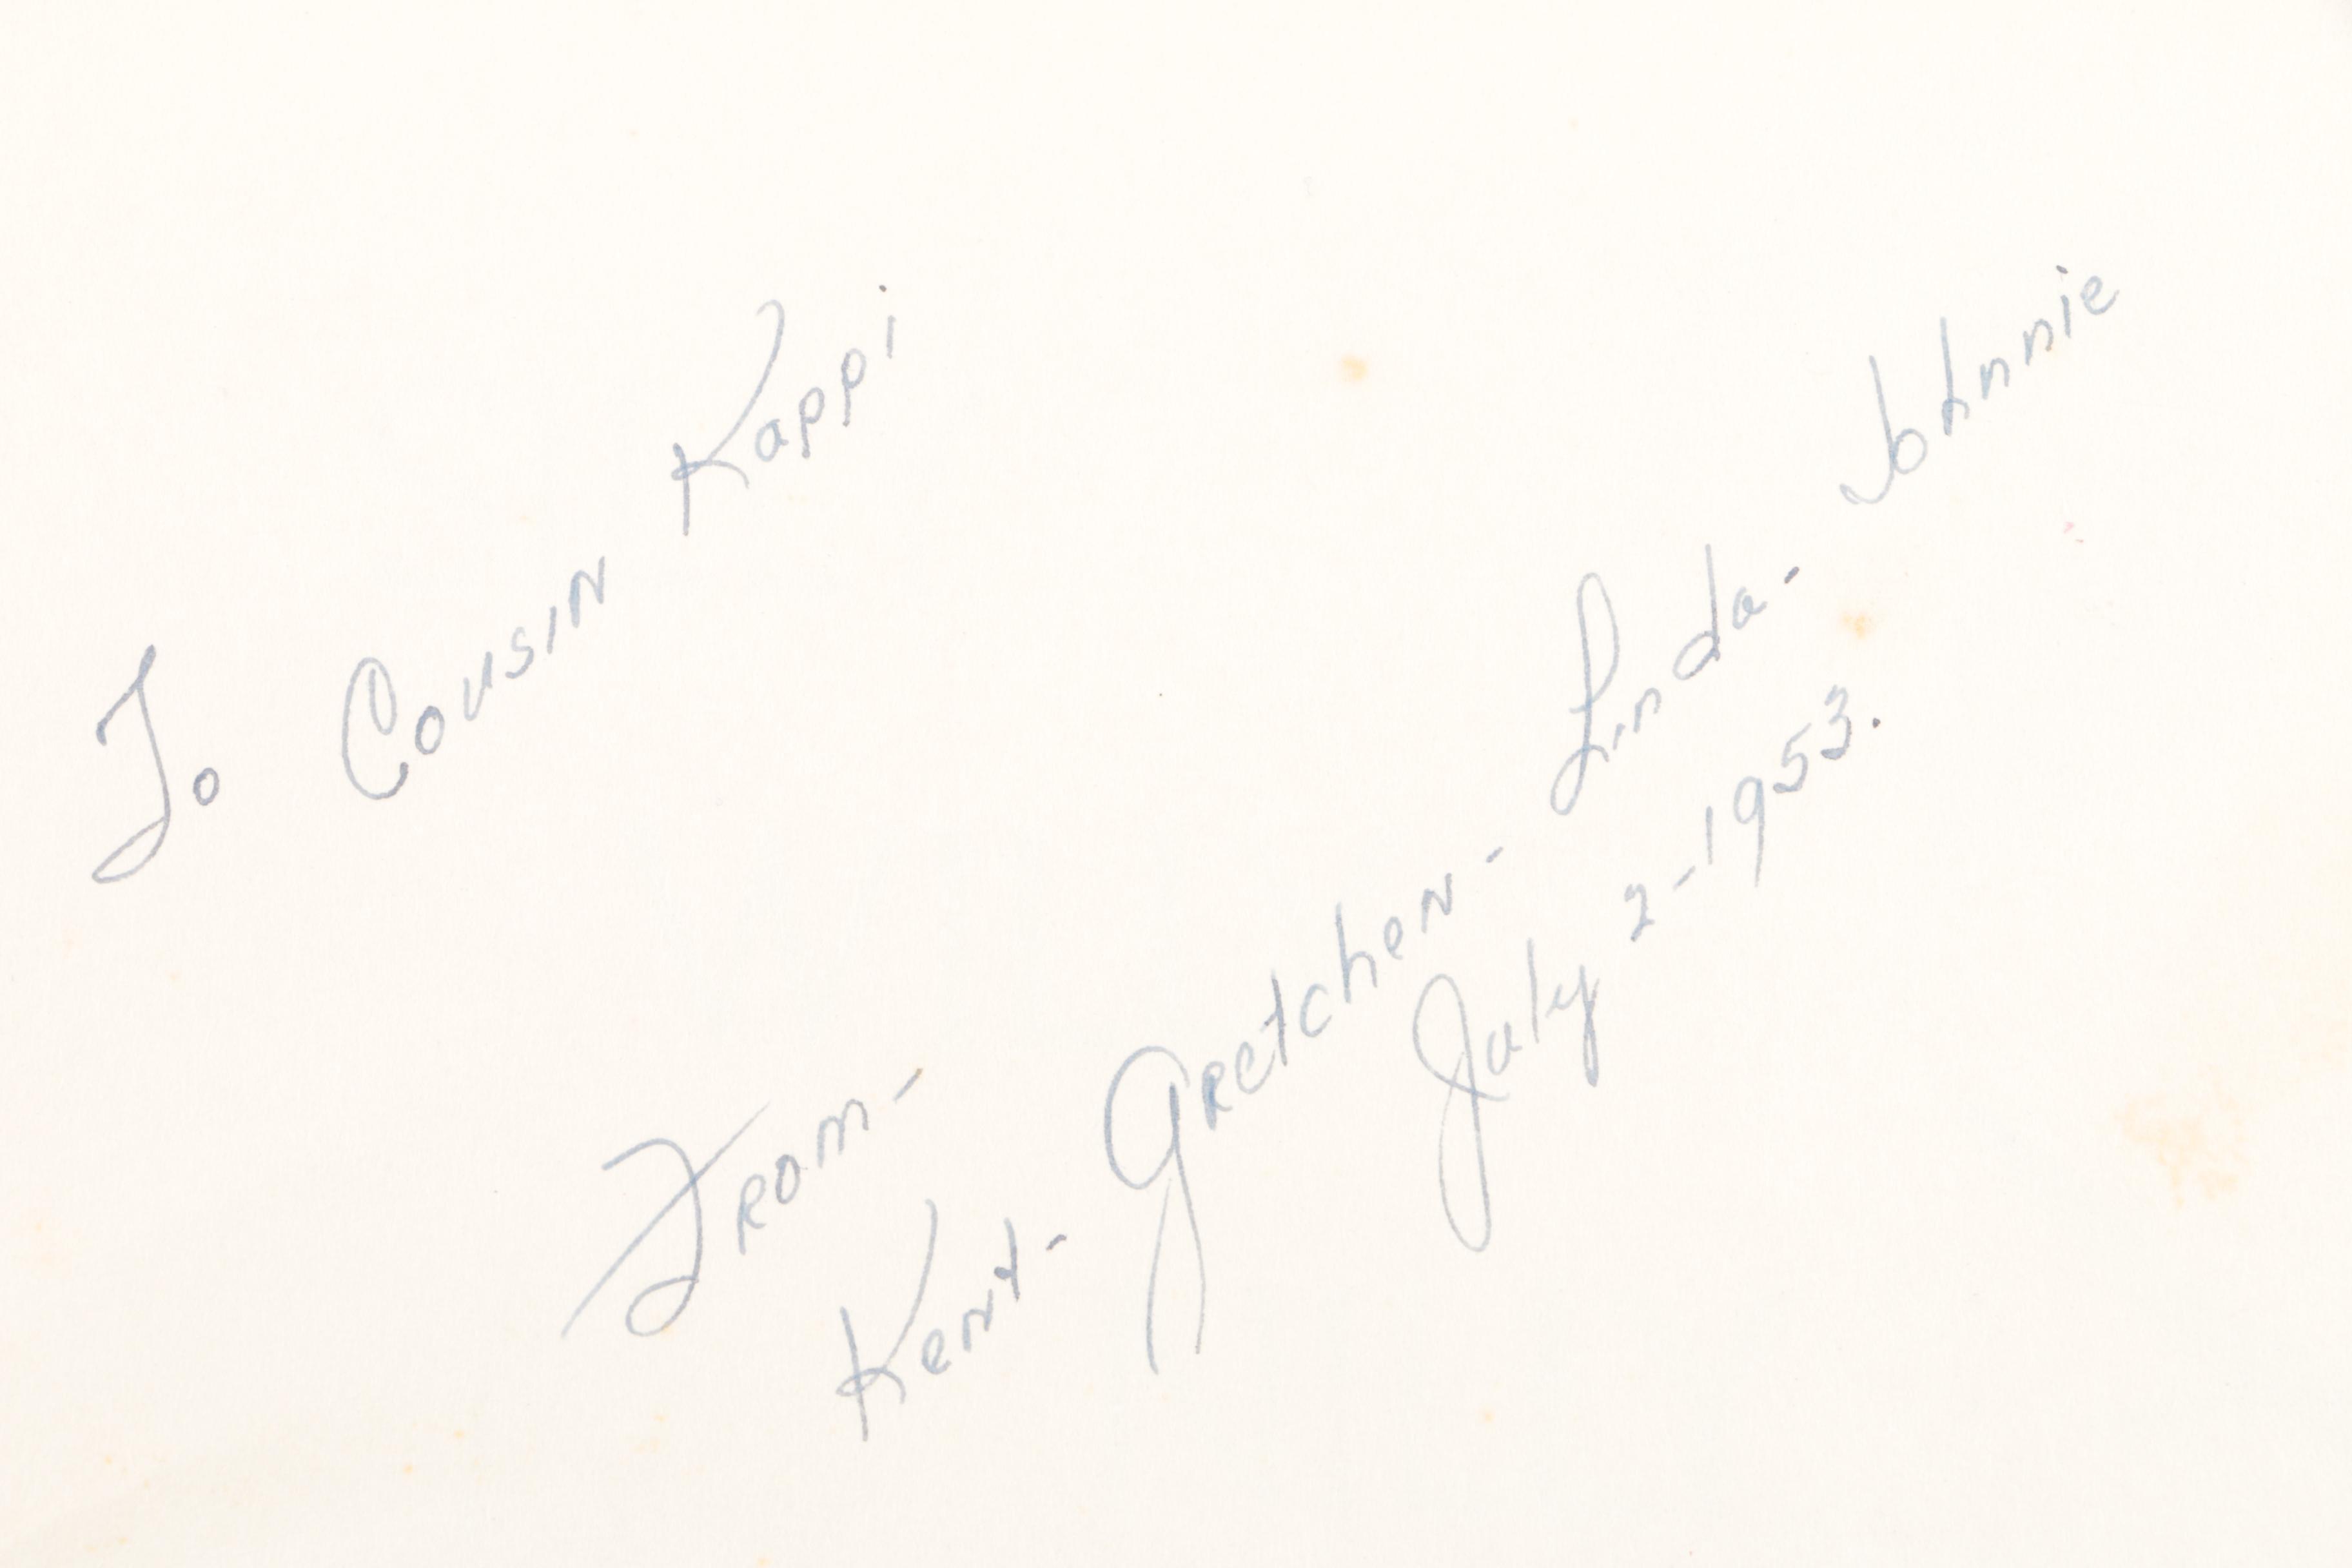 To Cousin Kappi
From-
Kent- Gretchen- Linda- Johnnie
July 2-1953.